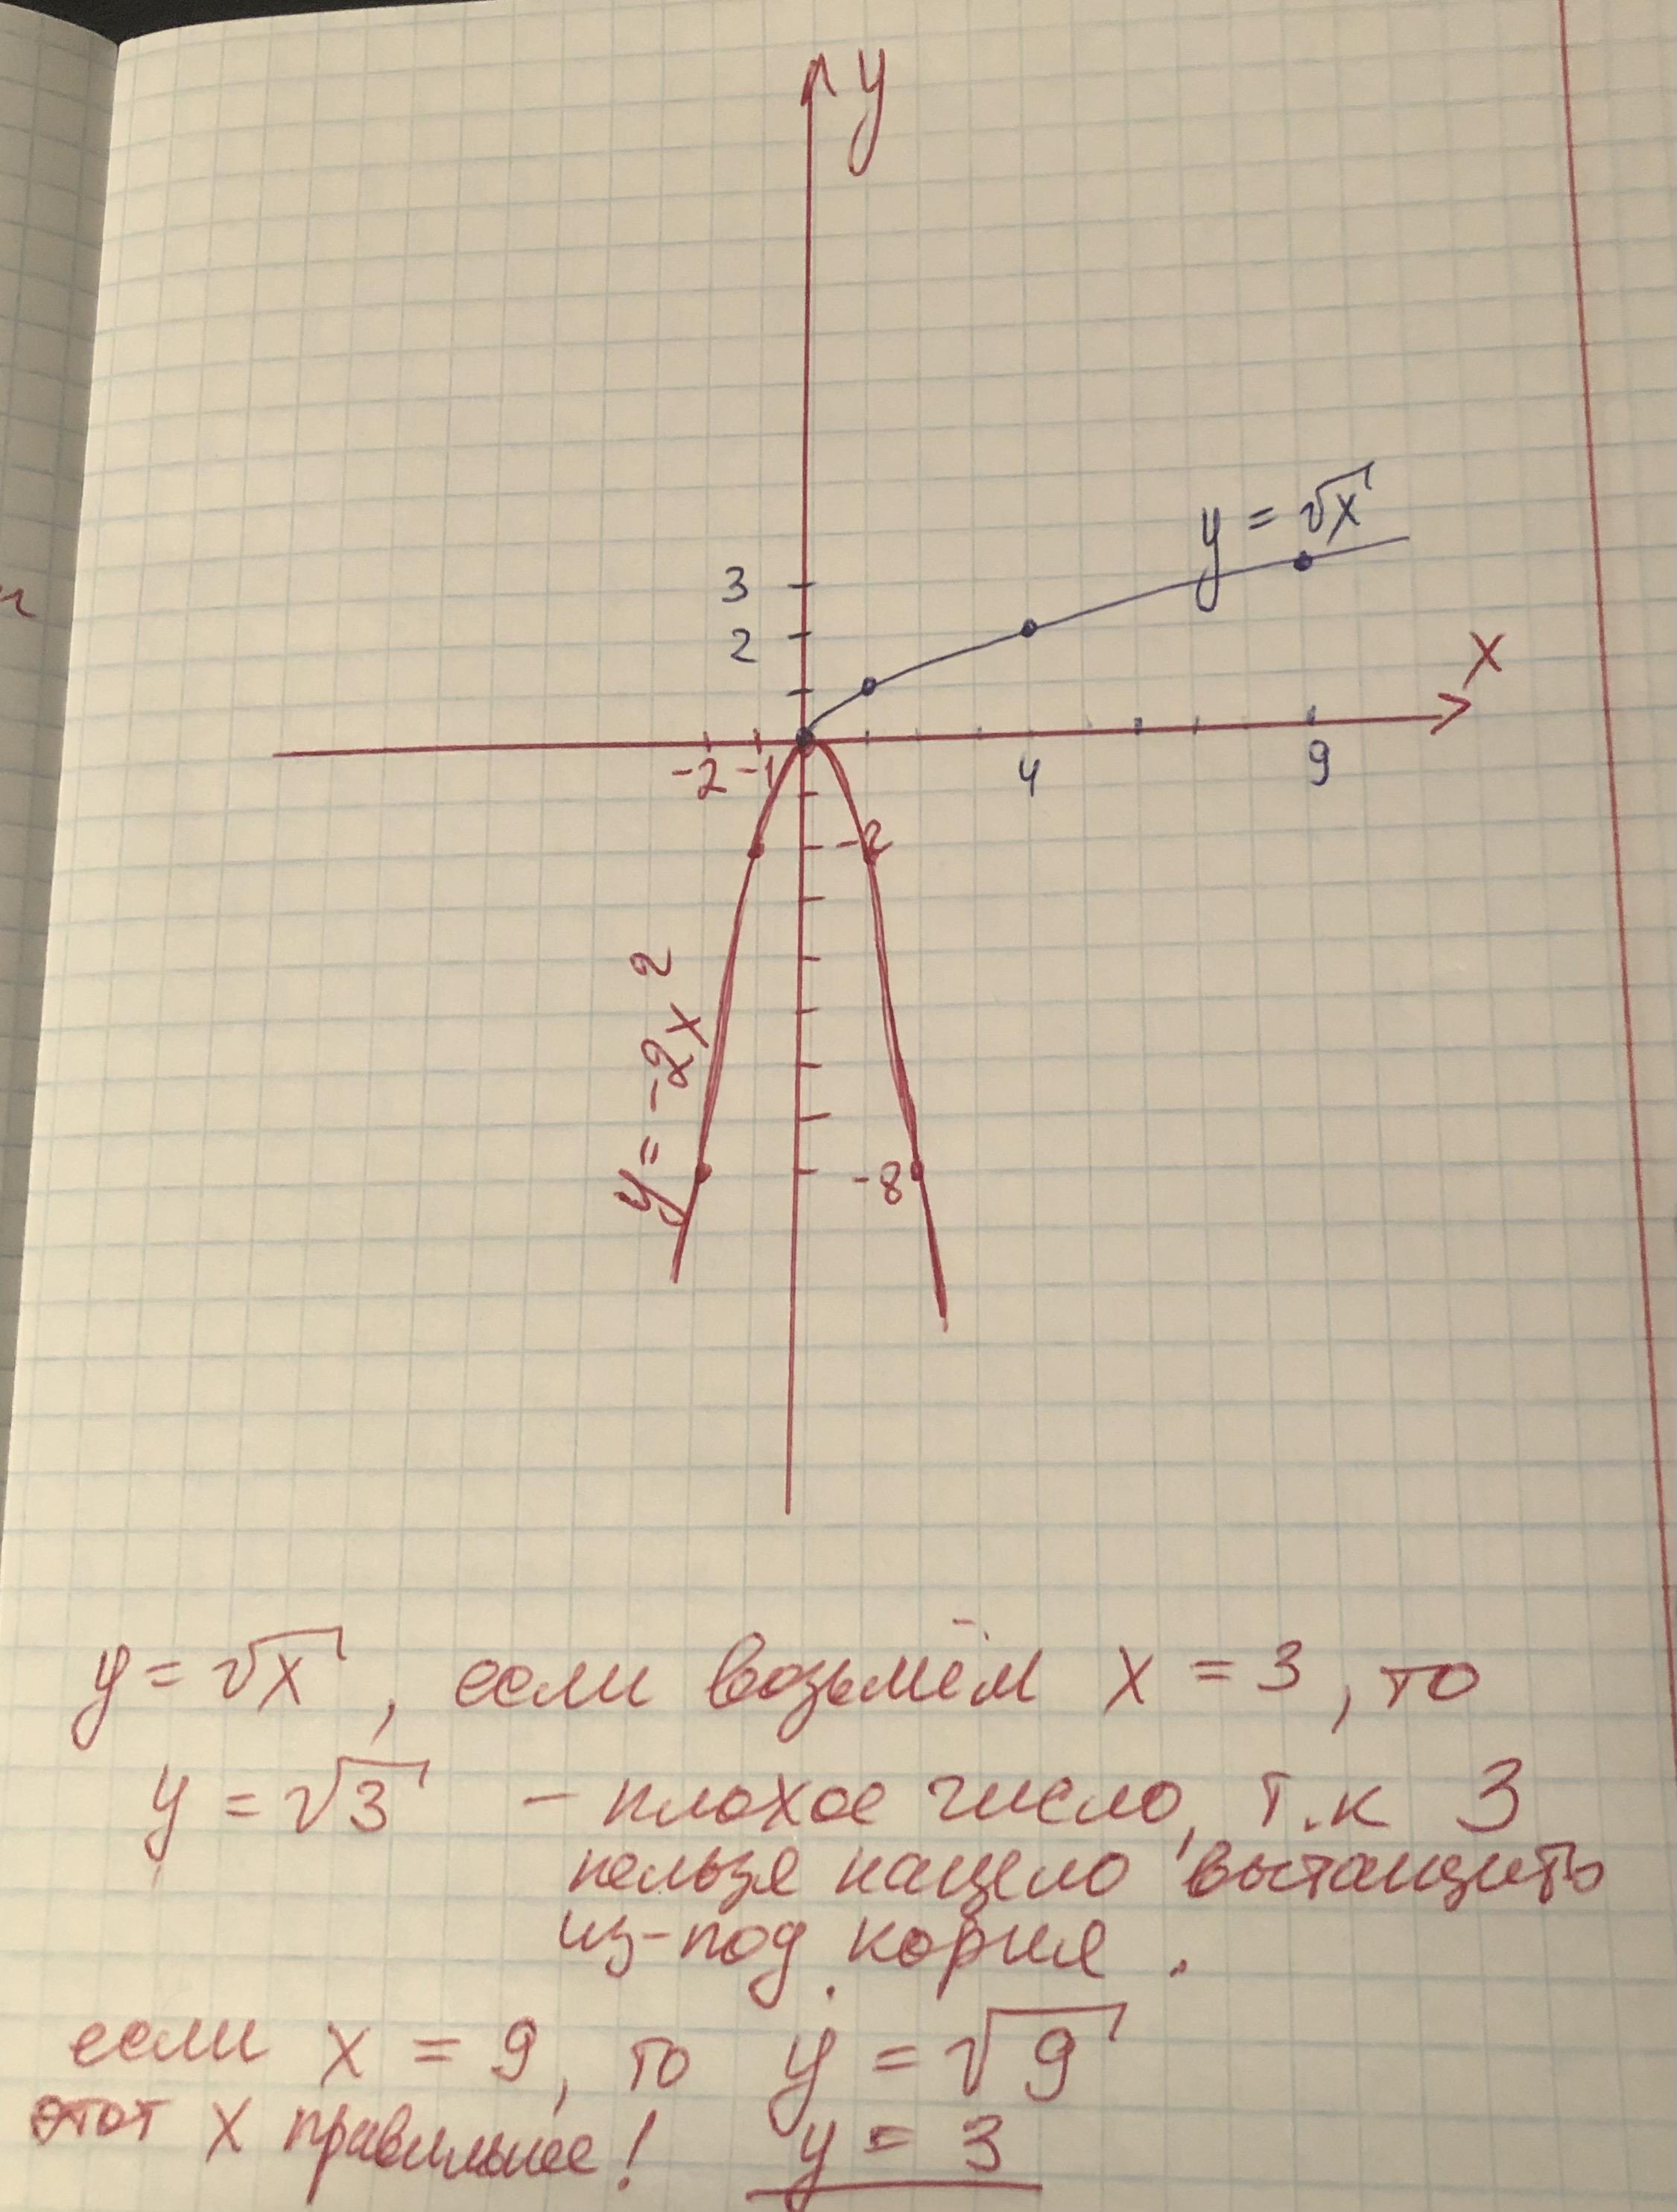 y
y = √x
3
2
x
-2 -1
4
9
-2
y = -2x²
-8
y = √x , если возьмём x = 3, то
y = √3 - плохое число, т.к 3
нельзя нацело вытащить
из-под корня .
если x = 9, то y = √9
этот x правильнее! y = 3